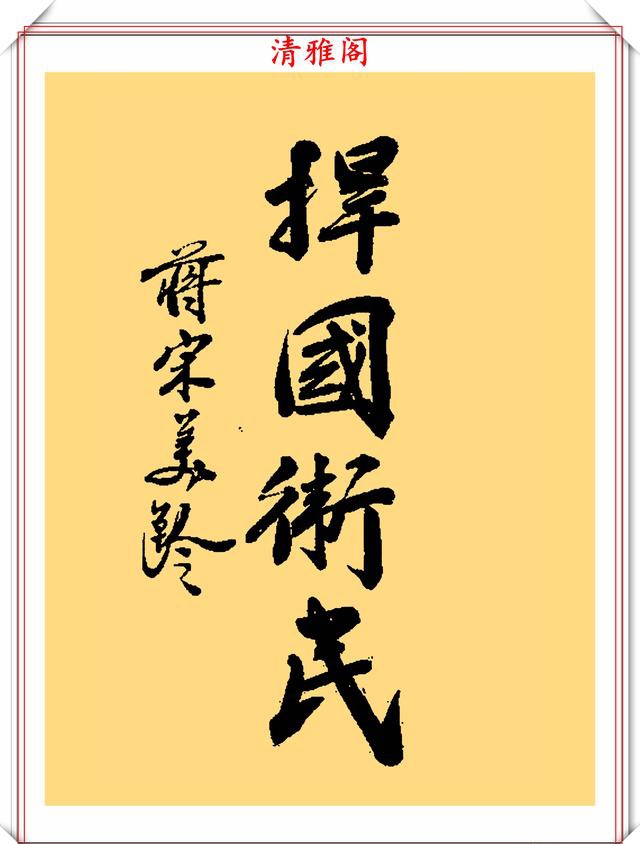 清雅阁
捍國衛民
蔣宋美齡